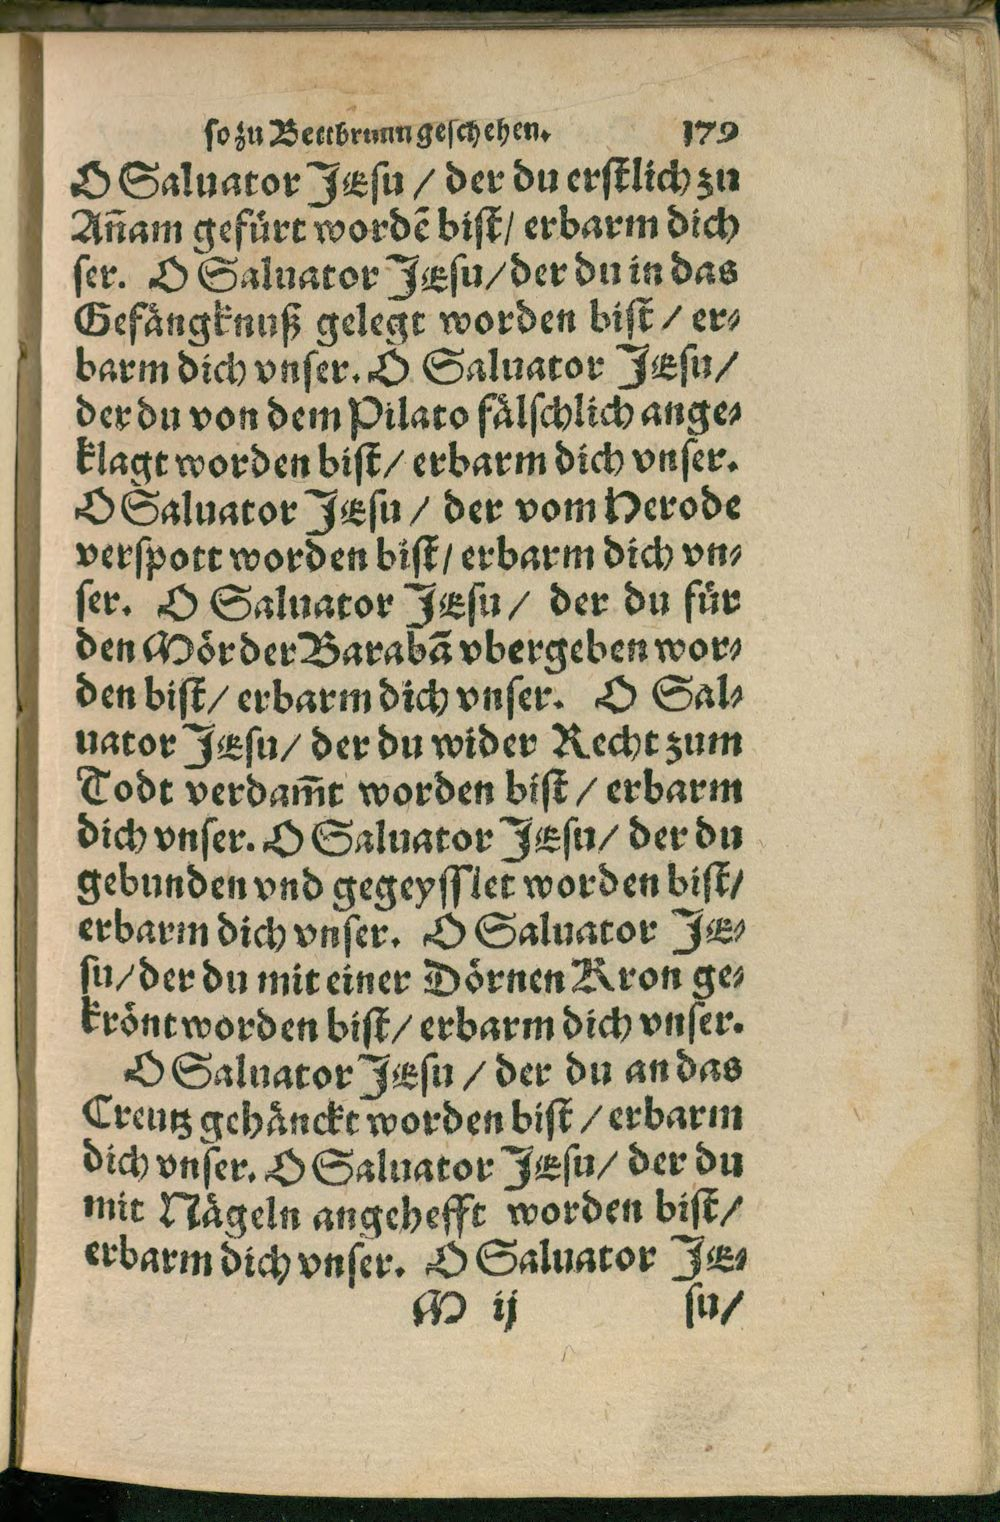 so zu Bettbrunn geschehen. 179
O Saluator JEsu / der du erstlich zu
Añam gefürt wordē bist / erbarm dich
ser. O Saluator JEsu / der du in das
Gefängknuß gelegt worden bist / er⸗
barm dich vnser. O Saluator JEsu /
der du von dem Pilato fälschlich ange⸗
klagt worden bist / erbarm dich vnser.
O Saluator JEsu / der vom Herode
verspott worden bist / erbarm dich vn⸗
ser. O Saluator JEsu / der du für
den Mörder Barabã vbergeben wor⸗
den bist / erbarm dich vnser. O Sal⸗
uator JEsu / der du wider Recht zum
Todt verdam̃t worden bist / erbarm
dich vnser. O Saluator JEsu / der du
gebunden vnd gegeysslet worden bist /
erbarm dich vnser. O Saluator JE⸗
su / der du mit einer Dörnen Kron ge⸗
krönt worden bist / erbarm dich vnser.
O Saluator JEsu / der du an das
Creutz gehänckt worden bist / erbarm
dich vnser. O Saluator JEsu / der du
mit Nägeln angehefft worden bist /
erbarm dich vnser. O Saluator JE⸗
M ij su /